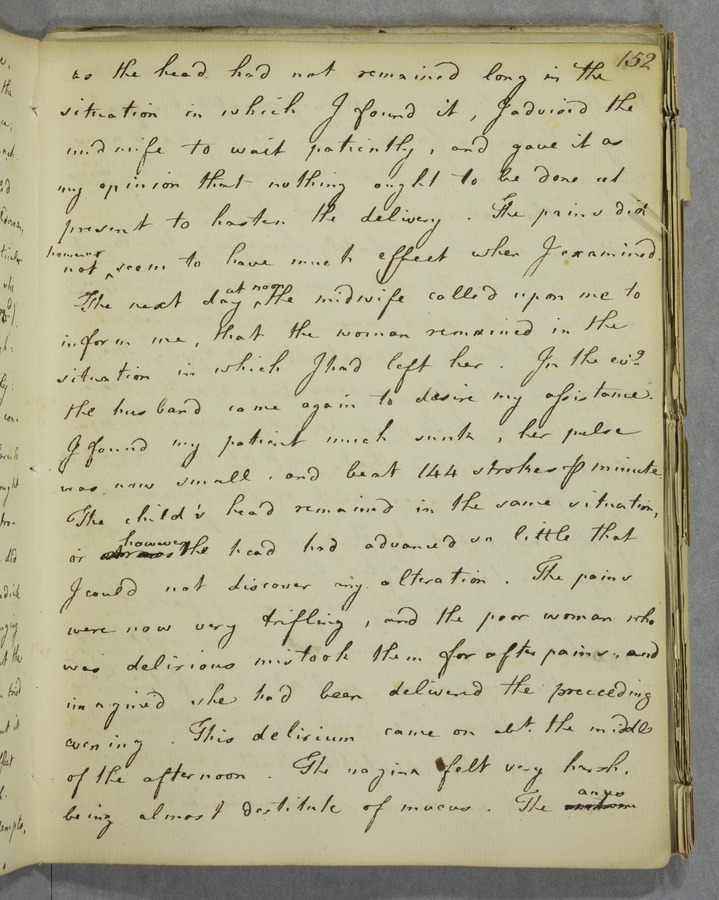 152
as the head had not remained long in the
situation in which I found it, I advised the
midwife to wait patiently, and gave it as
my opinion that nothing ought to be done at
present to hasten the delivery. The pains did
however
not seem to have much effect when I examined.
at noon
The next day the midwife called upon me to
inform me, that the woman remained in the
situation in which I had left her. In the ev.g
the husband came again to desire my assistance.
I found my patient much sunk, her pulse
was now small, and beat 144 strokes ⅌ minute.
The child's head remained in the same situation,
however
or the head had advanced so little that
I could not discover any alteration. The pains
were now very trifling, and the poor woman who
was delirious mistook them for after pains, and
imagined she had been delivered the preceeding
evening. This delirium came on abt. the middle
of the afternoon. The vagina felt very harsh,
being almost destitute of mucus. The
anus